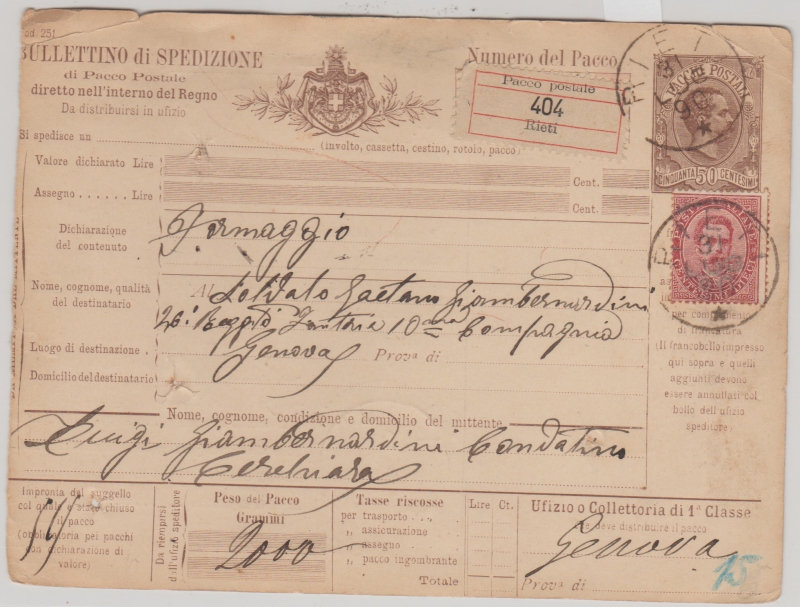 Mod. 251
BULLETTINO di SPEDIZIONE
di Pacco Postale
diretto nell'interno del Regno
Da distribuirsi in ufizio
Numero del Pacco
Pacco postale
404
Rieti
RIETI
PACCHI POSTALI
CINQUANTA 50 CENTESIMI
Si spedisce un
(involto, cassetta, cestino, rotolo, pacco)
Valore dichiarato Lire
Cent.
Assegno ...... Lire
Cent.
Dichiarazione
del contenuto
Formaggio
Nome, cognome, qualità
del destinatario
Al Soldato Gaetano Giambernardini
26° Reggto Fanteria 10ma Compagnia
Luogo di destinazione
Genova
Prova di
Domicilio del destinatario
RIETI
per
di francatura
(Il francobollo impresso
qui sopra e quelli
aggiunti devono
essere annullati col
bollo dell'ufizio
speditore)
Nome, cognome, condizione e domicilio del mittente
Luigi Giambernardini Contadino
Cerchiara
Impronta del suggello
col quale è stato chiuso
il pacco
(obbligatoria pei pacchi
con dichiarazione di
valore)
Da riempirsi
dall'ufizio speditore
Peso del Pacco
Grammi
2000
Tasse riscosse
Lire Ct.
per trasporto
„ assicurazione
„ assegno
„ pacco ingombrante
Totale
Ufizio o Collettoria di 1ª Classe
che deve distribuire il pacco
Genova
Prova di
15